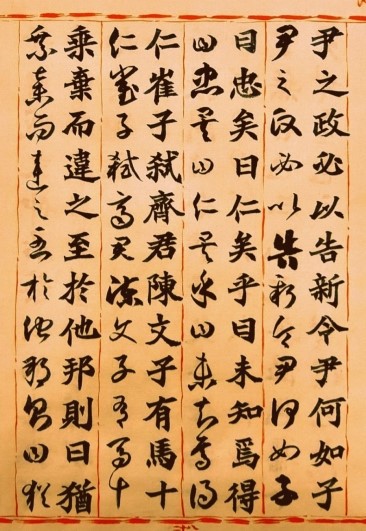 尹之政必以告新令尹何如子
尹之政必以告新令尹何如子
曰忠矣曰仁矣乎曰未知焉得
曰忠矣曰仁矣乎曰未知焉得
仁崔子弑齊君陳文子有馬十
仁崔子弑齊君陳文子有馬十
乘棄而違之至於他邦則曰猶
乘棄而違之至於他邦則曰猶